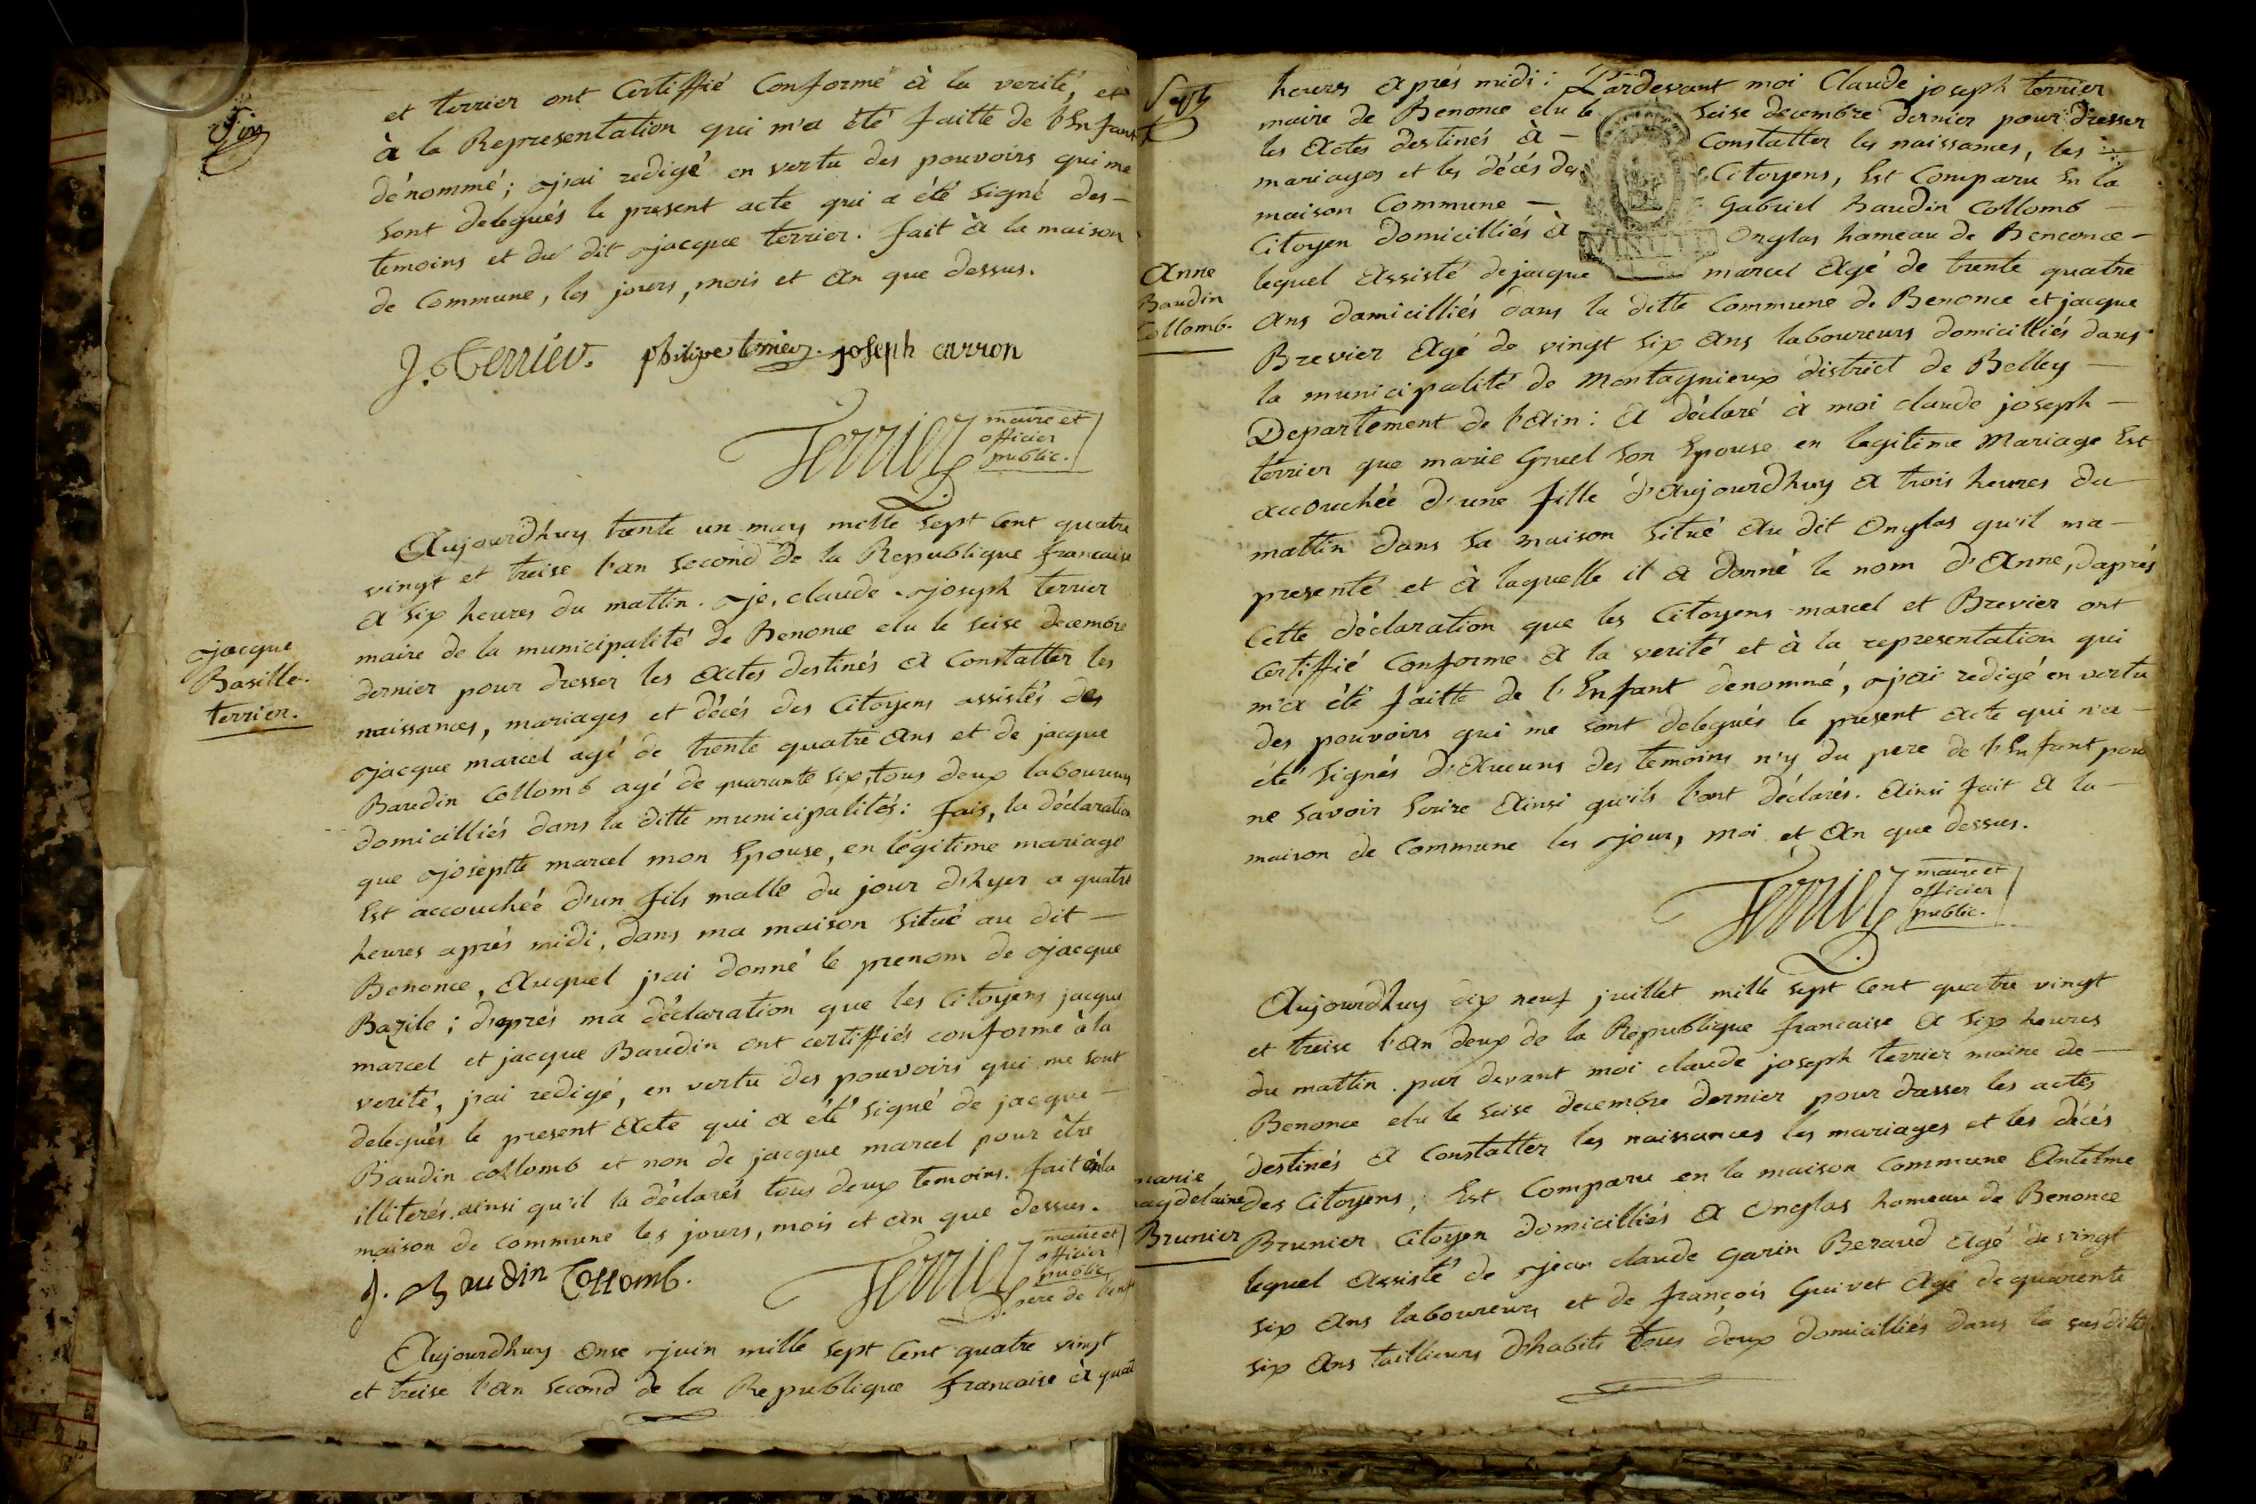 Six
et terrier ont Certiffié Conforme à la verité, et
à la Representation qui m'a été faitte de l'Enfant
dénommé; j'ai redigé en vertu des pouvoirs qui me
sont delegués le present acte qui a été signé des -
temoins et du dit jacque terrier. fait à la maison
de Commune, les jours, mois et an que dessus.
J. Terrier. philipe terrier. joseph carron
Terrier maire et
officier
public.
Aujourdhuy trente un may mille sept cent quatre
vingt et treise l'an second de la Republique francaise
a six heures du mattin. je, claude joseph terrier
maire de la municipalité de Benonce elu le seise decembre
dernier pour dresser les actes destinés a Constatter les
naissances, mariages et décés des Citoyens assistés de
jacque marcel agé de trente quatre ans et de jacque
Baudin Collomb agé de quarante six, tous deux laboureurs
domicilliés dans la ditte municipalités: fais, la déclaration
que josephte marcel mon Epouse, en légitime mariage
Est accouchéé d'un fils malle du jour d'hyer a quatre
heures aprés midi, dans ma maison situé au dit -
Benonce, auquel j'ai donné le prenom de jacque
Bazile; d'aprés ma déclaration que les Citoyens jacque
marcel et jacque Baudin ont certiffiés conforme à la
verité, j'ai redigé, en vertu des pouvoirs qui me sont
delegués le present acte qui a été signé de jacque -
Baudin collomb et non de jacque marcel pour être
illiterés, ainsi qu'il la déclarés tous deux temoins. fait à la
maison de commune les jours, mois et an que dessus.
jacque
Basille
terrier.
J. Baudin Collomb.
Terrier maire et
officier
public
pere de l'enft
Aujourdhuy onse juin mille sept cent quatre vingt
et treise l'an second de la Republique francaise à quatre
Sept
heures aprés midi: Pardevant moi Claude joseph terrier
maire de Benonce elu le seise decembre dernier pour dresser
les actes destinés à - Constatter les naissances, les -
mariages et les décés des Citoyens, Est Comparu En la
maison Commune - Gabriel Baudin Collomb -
Citoyen domicilliés à Onglas hameau de Benonce -
MINUTE
lequel assisté de jacque marcel agé de trente quatre
ans domicilliés dans la ditte Commune de Benonce et jacque
Brevier agé de vingt six ans laboureurs domicilliés dans
la municipalité de Montagnieux district de Belley -
Departement de l'ain: a déclaré à moi claude joseph -
terrier que marie Gruel son Epouse en legitime Mariage Est
accouchéé d'une fille d'aujourdhuy a trois heures du
mattin dans sa maison situé au dit Onglas qu'il ma -
presenté et à laquelle il a donné le nom d'Anne, d'aprés
Cette déclaration que les Citoyens marcel et Brevier ont
certiffié Conforme a la verité et à la representation qui
m'a été faitte de l'Enfant denommé, j'ai redigé en vertu
des pouvoirs qui me sont delegués le present acte qui n'a -
été signés d'aucuns des temoins n'y du pere de l'Enfant pour
ne savoir Ecrire ainsi qu'ils l'ont déclarés. ainsi fait a la -
maison de Commune les jour, moi et an que dessus.
Anne
Baudin
Collomb.
Terrier maire et
officier
public.
Aujourdhuy dix neuf juillet mille sept cent quatre vingt
et treise l'an deux de la Republique francaise a six heures
du mattin. par devant moi claude joseph terrier maire de -
Benonce elu le seise decembre dernier pour dresser les actes
destinés a Constatter les naissances les mariages et les décés
des Citoyens, Est Comparu en la maison Commune Antelme
Brunier Citoyen domicilliés a Onglas hameau de Benonce
lequel assisté de jean claude Garin Beraud agé de vingt
six ans laboureurs et de françois Guivet agé de quarente
six ans tailleurs d'habits tous deux domicilliés dans la susditte
marie
magdelaine
Brunier